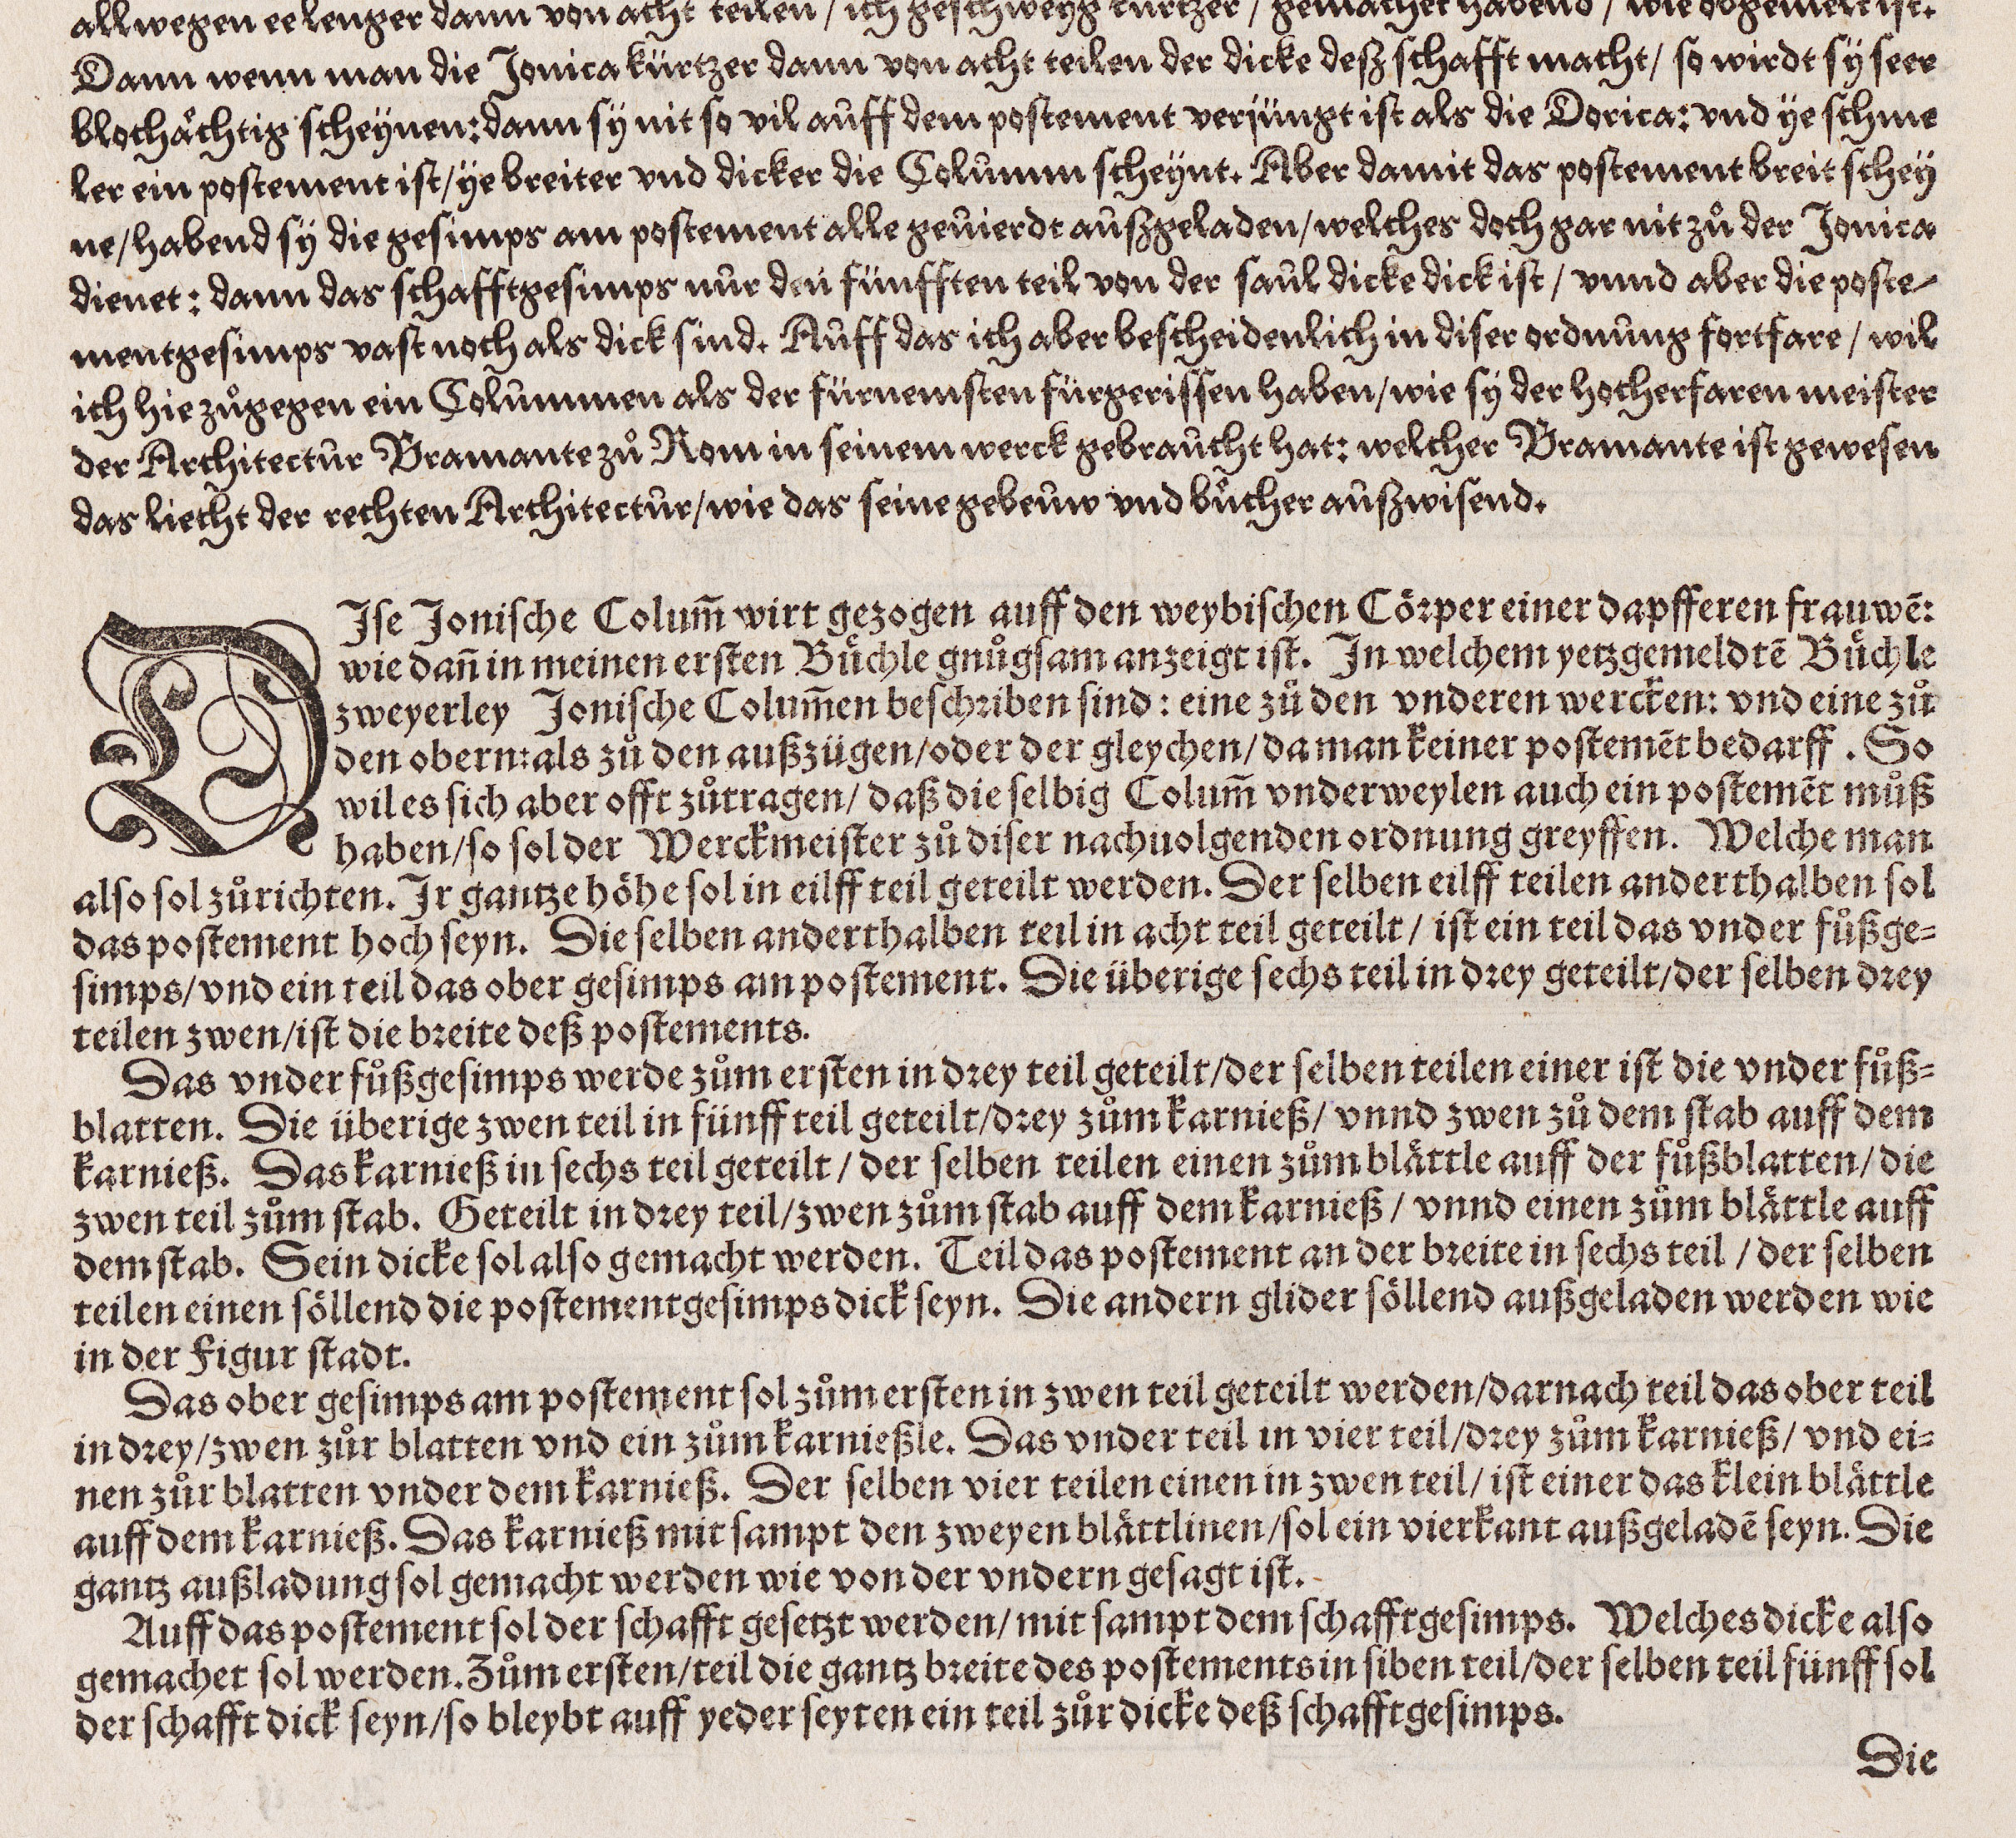 allwegen ee lenger dann von acht teilen / ich geschweyg kürtzer / gemachet habend / wie obgemelt ist.
Dann wenn man die Jonica kürtzer dann von acht teilen der dicke desz schafft macht / so wirdt sy seer
blochåchtig scheynen: dann sy nit so vil auff dem postement verjüngt ist als die Dorica: vnd ye schme
ler ein postement ist / ye breiter vnd dicker die Columm scheynt. Aber damit das postement breit schey
ne / habend sy die gesimps am postement alle gevierdt außgeladen / welches doch gar nit zů der Jonica
dienet: dann das schafftgesimps nur den fünfften teil von der saul dicke dick ist / vnnd aber die poste⸗
mentgesimps vast noch als dick sind. Auff das ich aber bescheidenlich in diser ordnung fortfare / wil
ich hie zůgegen ein Columnen als der fürnemsten fürgerissen haben / wie sy der hocherfaren meister
der Architectur Bramante zů Rom in seinem werck gebraucht hat: welcher Bramante ist gewesen
das liecht der rechten Architectur / wie das seine gebeuw vnd bücher außwisend.
DIse Jonische Colum̄ wirt gezogen auff den weybischen Cörper einer dapfferen frauwē:
wie dañ in meinen ersten Büchle gnůgsam anzeigt ist. In welchem yetzgemeldtē Büchle
zweyerley Jonische Colum̄en beschriben sind: eine zů den vnderen wercken: vnd eine zů
den obern: als zů den außzügen / oder der gleychen / da man keiner postemēt bedarff. So
wil es sich aber offt zůtragen / daß die selbig Colum̄ vnderweylen auch ein postemēt můß
haben / so sol der Werckmeister zů diser nachuolgenden ordnung greyffen. Welche man
also sol zůrichten. Ir gantze höhe sol in eilff teil geteilt werden. Der selben eilff teilen anderthalben sol
das postement hoch seyn. Die selben anderthalben teil in acht teil geteilt / ist ein teil das vnder fůßge⸗
simps / vnd ein teil das ober gesimps am postement. Die überige sechs teil in drey geteilt / der selben drey
teilen zwen / ist die breite deß postements.
Das vnder fůßgesimps werde zům ersten in drey teil geteilt / der selben teilen einer ist die vnder fůß⸗
blatten. Die überige zwen teil in fünff teil geteilt / drey zům karnieß / vnnd zwen zů dem stab auff dem
karnieß. Das karnieß in sechs teil geteilt / der selben teilen einen zům blåttle auff der fůßblatten / die
zwen teil zům stab. Geteilt in drey teil / zwen zům stab auff dem karnieß / vnnd einen zům blåttle auff
dem stab. Sein dicke sol also gemacht werden. Teil das postement an der breite in sechs teil / der selben
teilen einen söllend die postementgesimps dick seyn. Die andern glider söllend außgeladen werden wie
in der Figur stadt.
Das ober gesimps am postement sol zům ersten in zwen teil geteilt werden / darnach teil das ober teil
in drey / zwen zůr blatten vnd ein zům karnießle. Das vnder teil in vier teil / drey zům karnieß / vnd ei⸗
nen zůr blatten vnder dem karnieß. Der selben vier teilen einen in zwen teil / ist einer das klein blåttle
auff dem karnieß. Das karnieß mit sampt den zweyen blåttlinen / sol ein vierkant außgeladē seyn. Die
gantz außladung sol gemacht werden wie von der vndern gesagt ist.
Auff das postement sol der schafft gesetzt werden / mit sampt dem schafftgesimps. Welches dicke also
gemachet sol werden. Zům ersten / teil die gantz breite des postements in siben teil / der selben teil fünff sol
der schafft dick seyn / so bleybt auff yeder seyten ein teil zůr dicke deß schafftgesimps.
Die